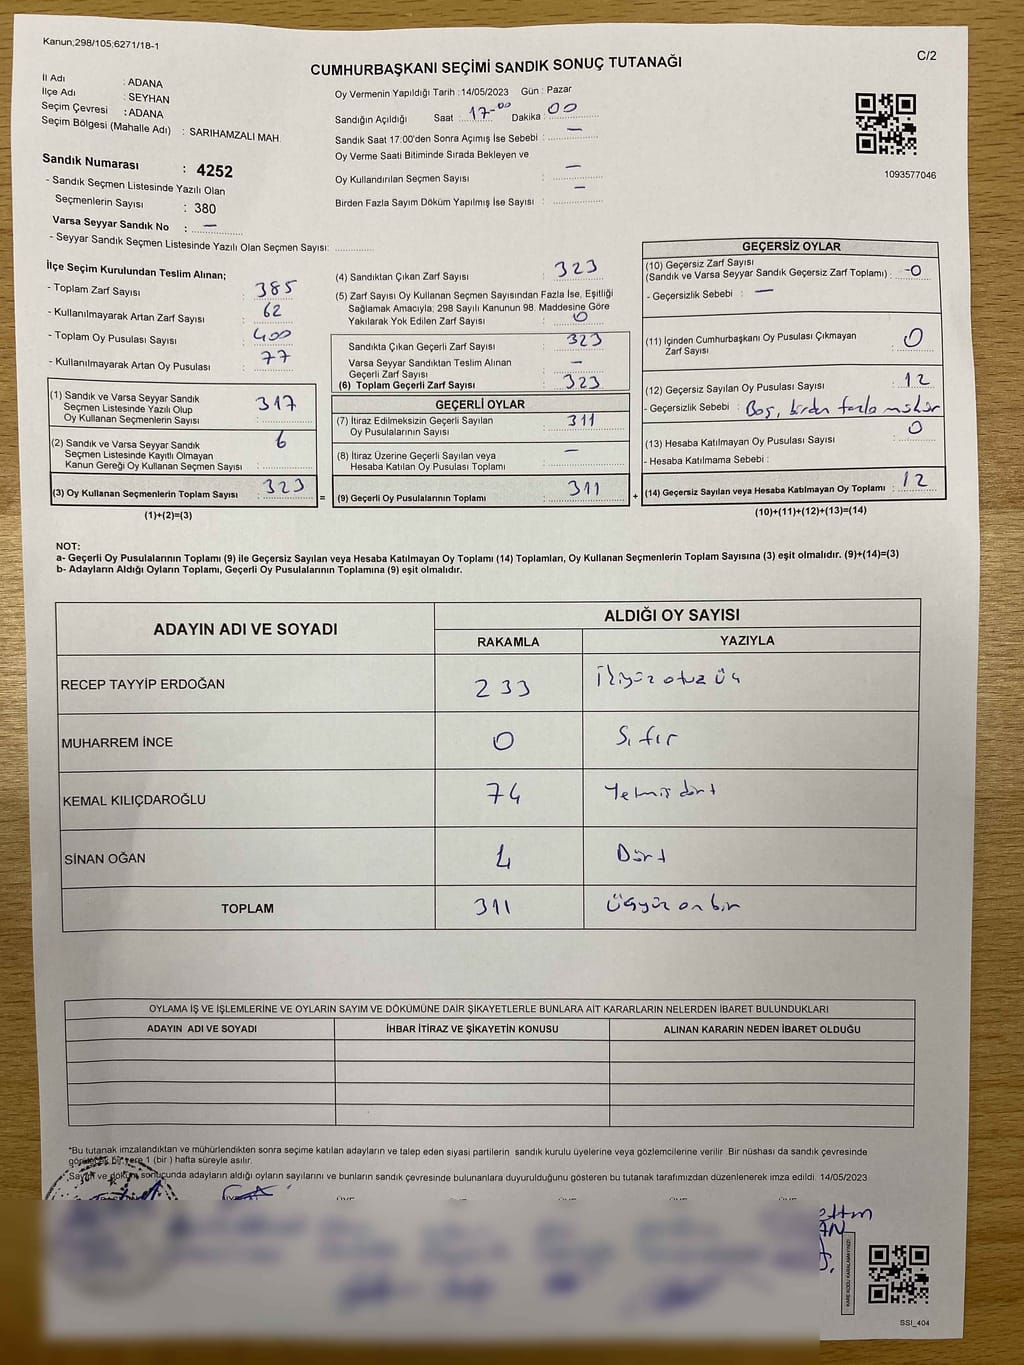 Kanun;298/105;6271/18-1
C/2
CUMHURBAŞKANI SEÇİMİ SANDIK SONUÇ TUTANAĞI
İl Adı : ADANA
İlçe Adı : SEYHAN
Seçim Çevresi : ADANA
Seçim Bölgesi (Mahalle Adı) : SARIHAMZALI MAH.
Sandık Numarası : 4252
- Sandık Seçmen Listesinde Yazılı Olan
Seçmenlerin Sayısı : 380
Varsa Seyyar Sandık No : —
- Seyyar Sandık Seçmen Listesinde Yazılı Olan Seçmen Sayısı:
Oy Vermenin Yapıldığı Tarih : 14/05/2023 Gün : Pazar
Sandığın Açıldığı Saat : 17-00 Dakika : 00
Sandık Saat 17:00'den Sonra Açımış İse Sebebi : —
Oy Verme Saati Bitiminde Sırada Bekleyen ve
Oy Kullandırılan Seçmen Sayısı : —
Birden Fazla Sayım Döküm Yapılmış İse Sayısı : —
1093577046
İlçe Seçim Kurulundan Teslim Alınan;
- Toplam Zarf Sayısı : 385
- Kullanılmayarak Artan Zarf Sayısı : 62
- Toplam Oy Pusulası Sayısı : 400
- Kullanılmayarak Artan Oy Pusulası : 77
(1) Sandık ve Varsa Seyyar Sandık
Seçmen Listesinde Yazılı Olup
Oy Kullanan Seçmenlerin Sayısı : 317
(2) Sandık ve Varsa Seyyar Sandık
Seçmen Listesinde Kayıtlı Olmayan
Kanun Gereği Oy Kullanan Seçmen Sayısı : 6
(3) Oy Kullanan Seçmenlerin Toplam Sayısı : 323
(1)+(2)=(3)
=
(4) Sandıktan Çıkan Zarf Sayısı : 323
(5) Zarf Sayısı Oy Kullanan Seçmen Sayısından Fazla İse, Eşitliği
Sağlamak Amacıyla; 298 Sayılı Kanunun 98. Maddesine Göre
Yakılarak Yok Edilen Zarf Sayısı : 0
Sandıkta Çıkan Geçerli Zarf Sayısı : 323
Varsa Seyyar Sandıktan Teslim Alınan
Geçerli Zarf Sayısı : —
(6) Toplam Geçerli Zarf Sayısı : 323
GEÇERLİ OYLAR
(7) İtiraz Edilmeksizin Geçerli Sayılan
Oy Pusulalarının Sayısı : 311
(8) İtiraz Üzerine Geçerli Sayılan veya
Hesaba Katılan Oy Pusulası Toplamı : —
(9) Geçerli Oy Pusulalarının Toplamı : 311
+
GEÇERSİZ OYLAR
(10) Geçersiz Zarf Sayısı
(Sandık ve Varsa Seyyar Sandık Geçersiz Zarf Toplamı) : -0
- Geçersizlik Sebebi : —
(11) İçinden Cumhurbaşkanı Oy Pusulası Çıkmayan
Zarf Sayısı : 0
(12) Geçersiz Sayılan Oy Pusulası Sayısı : 12
- Geçersizlik Sebebi : Boş, birden fazla mühür
(13) Hesaba Katılmayan Oy Pusulası Sayısı : 0
- Hesaba Katılmama Sebebi :
(14) Geçersiz Sayılan veya Hesaba Katılmayan Oy Toplamı : 12
(10)+(11)+(12)+(13)=(14)
NOT:
a- Geçerli Oy Pusulalarının Toplamı (9) ile Geçersiz Sayılan veya Hesaba Katılmayan Oy Toplamı (14) Toplamları, Oy Kullanan Seçmenlerin Toplam Sayısına (3) eşit olmalıdır. (9)+(14)=(3)
b- Adayların Aldığı Oyların Toplamı, Geçerli Oy Pusulalarının Toplamına (9) eşit olmalıdır.
ADAYIN ADI VE SOYADI
ALDIĞI OY SAYISI
RAKAMLA YAZIYLA
RECEP TAYYİP ERDOĞAN 233 İkiyüz otuz üç
MUHARREM İNCE 0 Sıfır
KEMAL KILIÇDAROĞLU 74 Yetmiş dört
SİNAN OĞAN 4 Dört
TOPLAM 311 Üçyüz on bir
OYLAMA İŞ VE İŞLEMLERİNE VE OYLARIN SAYIM VE DÖKÜMÜNE DAİR ŞİKAYETLERLE BUNLARA AİT KARARLARIN NELERDEN İBARET BULUNDUKLARI
ADAYIN ADI VE SOYADI İHBAR İTİRAZ VE ŞİKAYETİN KONUSU ALINAN KARARIN NEDEN İBARET OLDUĞU
*Bu tutanak imzalandıktan ve mühürlendikten sonra seçime katılan adayların ve talep eden siyasi partilerin sandık kurulu üyelerine veya gözlemcilerine verilir. Bir nüshası da sandık çevresinde
görülecek bir yere 1 (bir ) hafta süreyle asılır.
Sayım ve döküm sonucunda adayların aldığı oyların sayılarını ve bunların sandık çevresinde bulunanlara duyurulduğunu gösteren bu tutanak tarafımızdan düzenlenerek imza edildi. 14/05/2023
KARE KODU KARALAMAYINIZ!
SSI_404